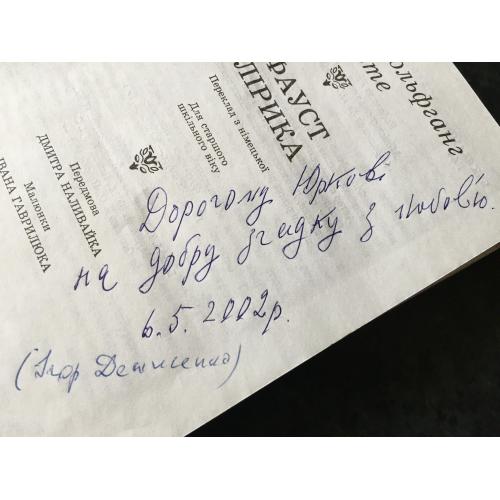 ольфганг
те
ФАУСТ
ЛІРИКА
Переклад з німецької
Для старшого
шкільного віку
Передмова
ДМИТРА НАЛИВАЙКА
Малюнки
ІВАНА ГАВРИЛЮКА
Дорогому Юркові
на добру згадку з любов'ю.
6.5.2002р.
(Ігор Денисенко)